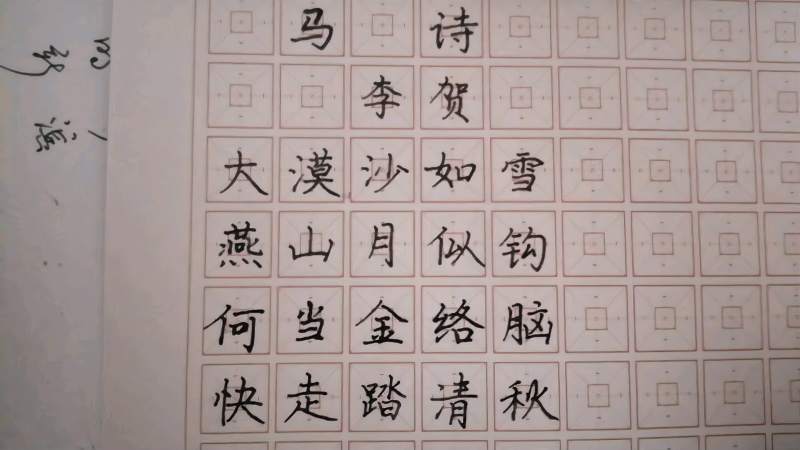 马诗
李贺
大漠沙如雪
燕山月似钩
何当金络脑
快走踏清秋